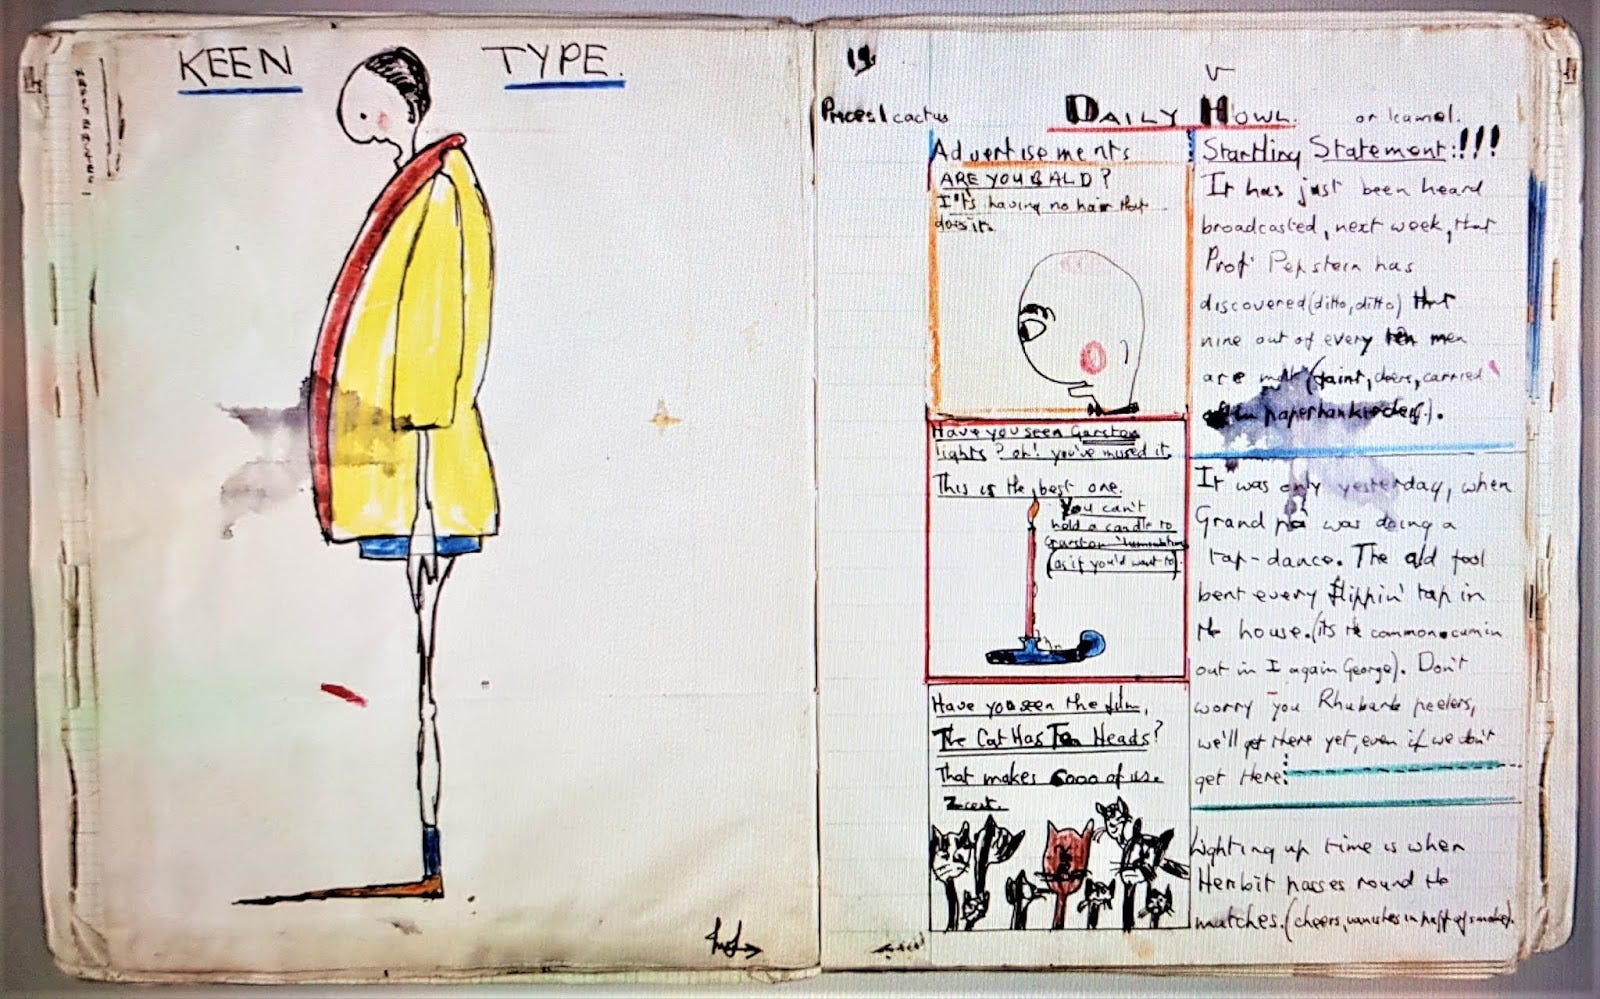 KEEN TYPE.
19
Prices 1 cactus
DAILY HOWL.
or kamel.
Advertisements
ARE YOU BALD?
It's having no hair that
does it.
Have you seen Garston
lights? oh! you've missed it.
This is the best one.
You can't
hold a candle to
Garston
(as if you'd want to).
Have you seen the film,
The Cat Has Ten Heads?
That makes 6000 of us.
2 cert.
Startling Statement:!!!
It has just been heard
broadcasted, next week, that
Prof Pepstein has
discovered (ditto, ditto) that
nine out of every ten men
are (faint, cheers, carried
paperhankerchefs).
It was only yesterday, when
Grand pa was doing a
tap-dance. The old fool
bent every flippin' tap in
the house. (its the common cumin
out in I again George). Don't
worry you Rhubarb peelers,
we'll get there yet, even if we don't
get Here.
Lighting up time is when
Herbit passes round the
matches. (cheers, vanishes in puff of smoke).